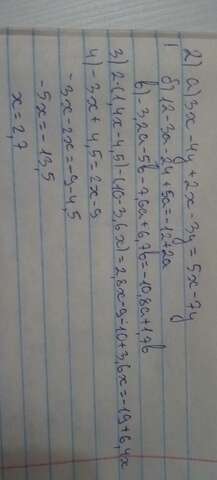 2) а) 3x-4y+2x-3y=5x-7y
б) 12-3a-24+5a=-12+2a
в) -3,2a-5b-7,6a+6,7b=-10,8a+1,7b
3) 2·(1,4x-4,5)-(10-3,6x)=2,8x-9-10+3,6x=-19+6,4x
4) -3x+4,5=2x-9
-3x-2x=-9-4,5
-5x=-13,5
x=2,7